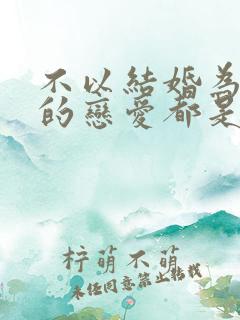 不以結婚為
的戀愛都是
梓萌不萌
未经同意禁止转载